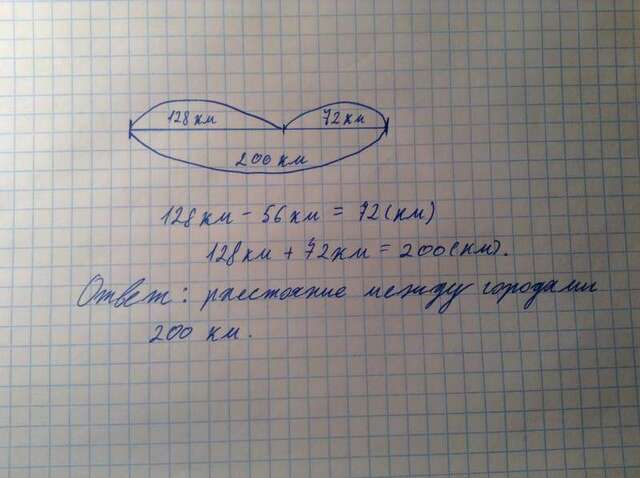 128 км 72 км
200 км
128 км - 56 км = 72 (км)
128 км + 72 км = 200 (км).
Ответ: расстояние между городами
200 км.